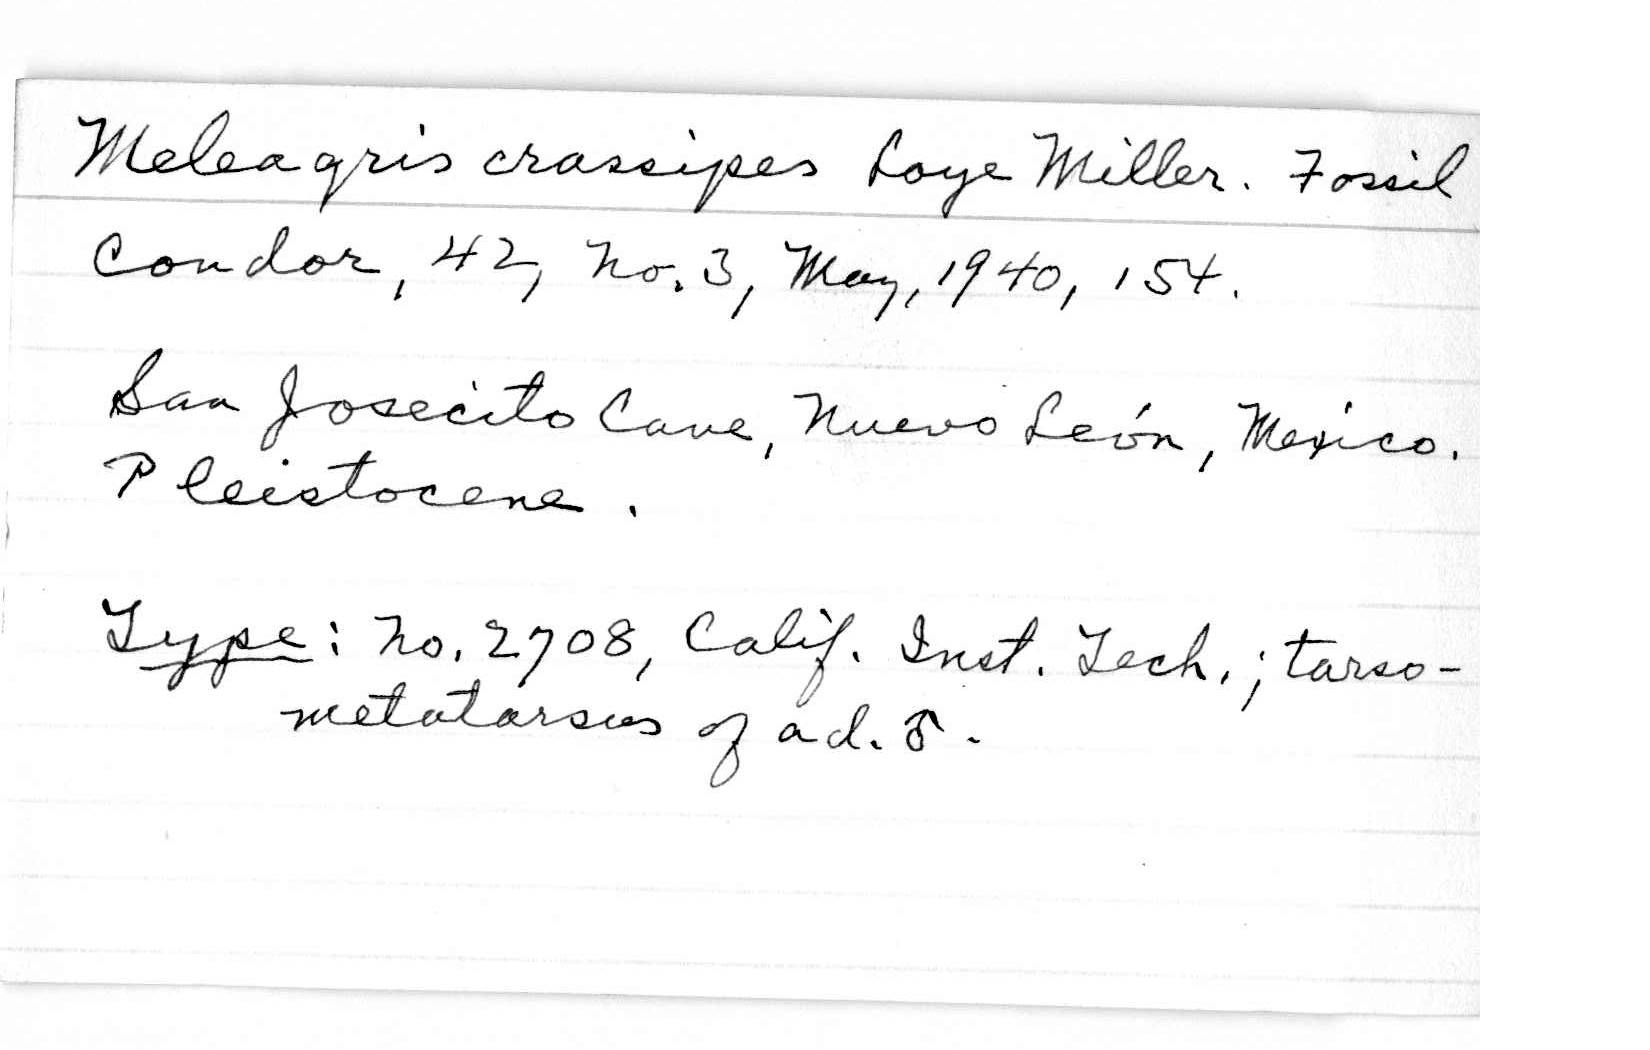 Meleagris crassipes Loye Miller. Fossil
Condor, 42, No. 3, May, 1940, 154.
San Josecito Cave, Nuevo León, Mexico.
Pleistocene.
Type: No. 2708, Calif. Inst. Tech.; tarso-
metatarsus of ad. ♂.